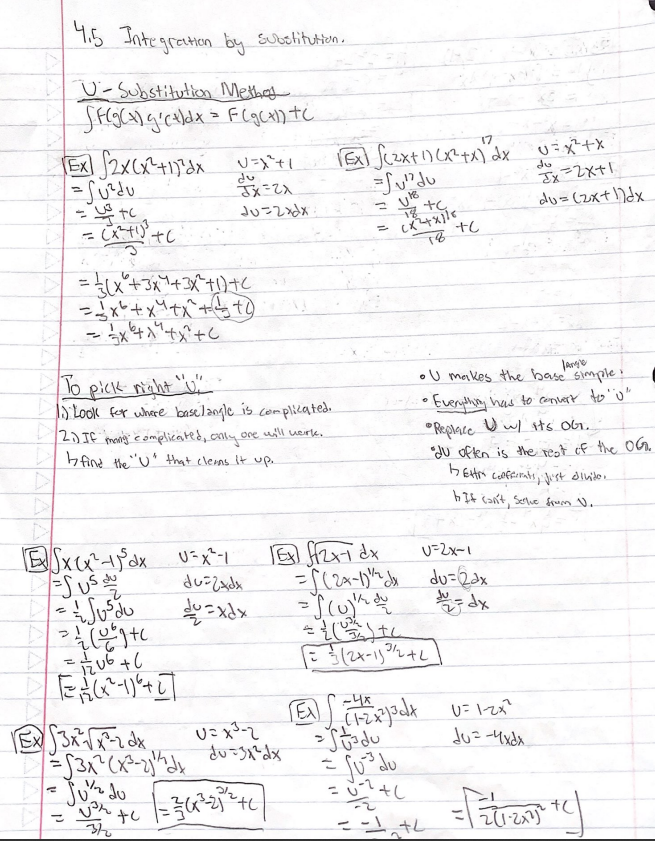 4.5 Integration by substitution.
U-Substitution Method
∫f(g(x)) g'(x)dx = F(g(x)) + C
Ex ∫2x(x²+1)²dx
= ∫u²du
= u³/3 + C
= (x²+1)³/3 + C
= 1/3(x⁶+3x⁴+3x²+1)+C
= 1/3x⁶+x⁴+x²+1/3+C
= 1/3x⁶+x⁴+x²+C
U=x²+1
du/dx=2x
du=2xdx
Ex ∫(2x+1)(x²+x)¹⁷dx
= ∫u¹⁷du
= u¹⁸/18 + C
= (x²+x)¹⁸/18 + C
U=x²+x
du/dx=2x+1
du=(2x+1)dx
To pick right "U"
1.) Look for where base/angle is complicated.
2.) If many complicated, only one will work.
↳ find the "U" that cleans it up.
• U makes the base/angle simple.
• Everything has to convert to "u"
• Replace U w/ its OG.
• du often is the rest of the OG.
↳ Extra coefficients, just divide.
↳ If can't, solve from U.
Ex ∫x(x²-1)⁵dx
= ∫u⁵ du/2
= 1/2∫u⁵du
= 1/2(u⁶/6)+C
= 1/12u⁶+C
= 1/12(x²-1)⁶+C
U=x²-1
du=2xdx
du/2=xdx
Ex ∫√2x-1 dx
= ∫(2x-1)^1/2 dx
= ∫(u)^1/2 du/2
= 1/2(u^3/2/3/2)+C
= 1/3(2x-1)^3/2+C
U=2x-1
du=2dx
du/2=dx
Ex ∫3x²√x³-2 dx
= ∫3x²(x³-2)^1/2dx
= ∫u^1/2 du
= u^3/2/3/2 + C
= 2/3(x³-2)^3/2+C
U=x³-2
du=3x²dx
Ex ∫-4x/(1-2x²)³dx
= ∫1/u³du
= ∫u⁻³du
= u⁻²/-2 + C
= -1/ ² + C
= -1/2(1-2x²)² + C
U=1-2x²
du=-4xdx